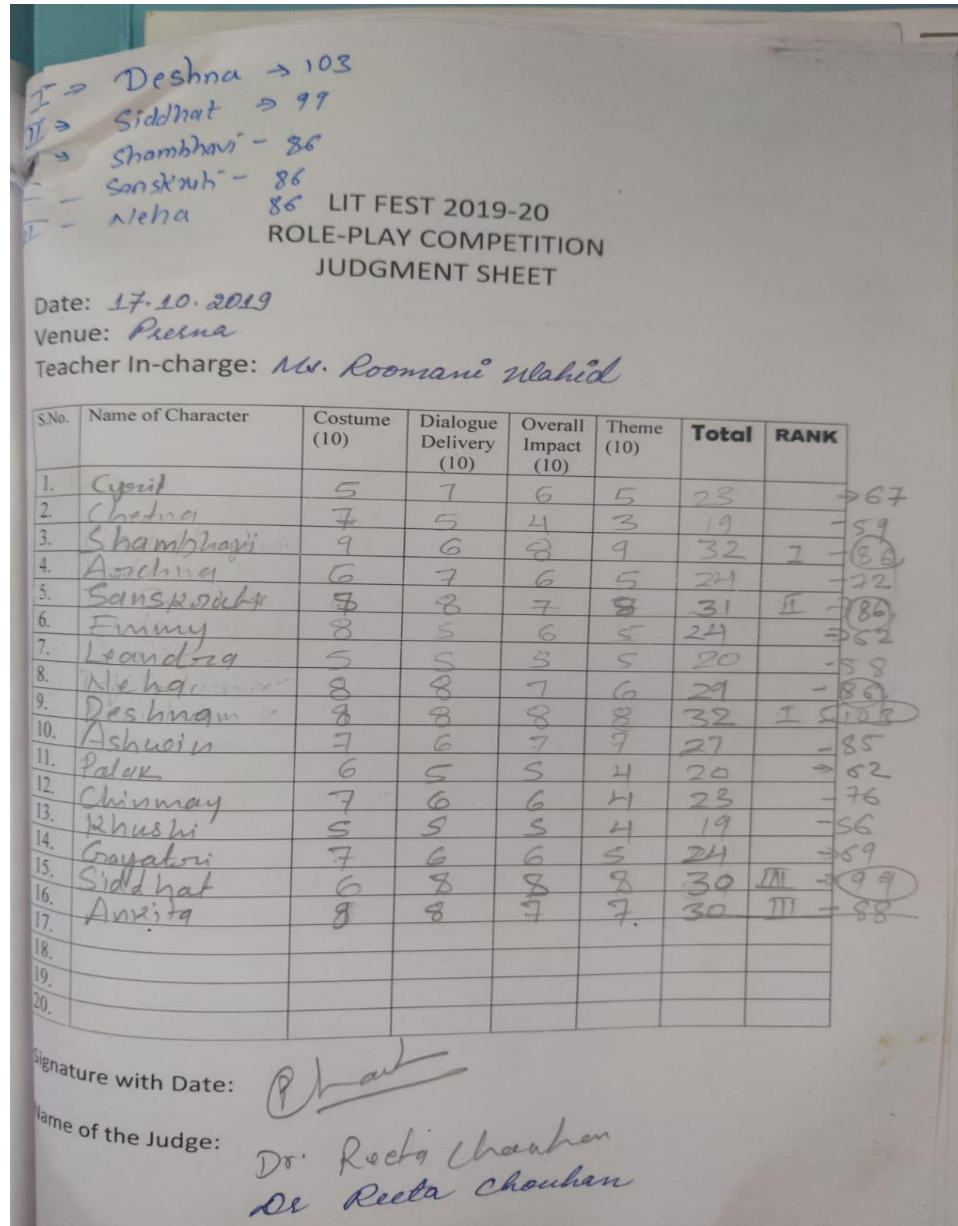 I ⇒ Deshna → 103
II ⇒ Siddhat ⇒ 99
Shambhavi - 86
Sanskruti - 86
Neha 86
LIT FEST 2019-20
ROLE-PLAY COMPETITION
JUDGMENT SHEET
Date: 17.10.2019
Venue: Prerna
Teacher In-charge: Ms. Roomani Wahid
S.No. Name of Character Costume (10) Dialogue Delivery (10) Overall Impact (10) Theme (10) Total RANK
1. Cyril 5 7 6 5 23 → 67
2. Chetna 7 5 4 3 19 - 59
3. Shambhavi 9 6 8 9 32 I - 86
4. Archna 6 7 6 5 24 - 72
5. 8 8 7 8 31 II - 86
6. Emmy 8 5 6 5 24 ⇒ 62
7. Leandra 5 5 5 5 20 - 58
8. Neha 8 8 7 6 29 - 86
9. Deshna 8 8 8 8 32 I 103
10. Ashwin 7 6 7 7 27 - 85
11. Palak 6 5 5 4 20 ⇒ 62
12. Chinmay 7 6 6 4 23 - 76
13. Khushi 5 5 5 4 19 - 56
14. Gayatri 7 6 6 5 24 ⇒ 69
15. Siddhat 6 8 8 8 30 III → 99
16. Ankita 8 8 7 7 30 III - 88
17.
18.
19.
20.
Signature with Date:
Name of the Judge:
Dr. Reeta Chauhan
Dr Reeta Chouhan